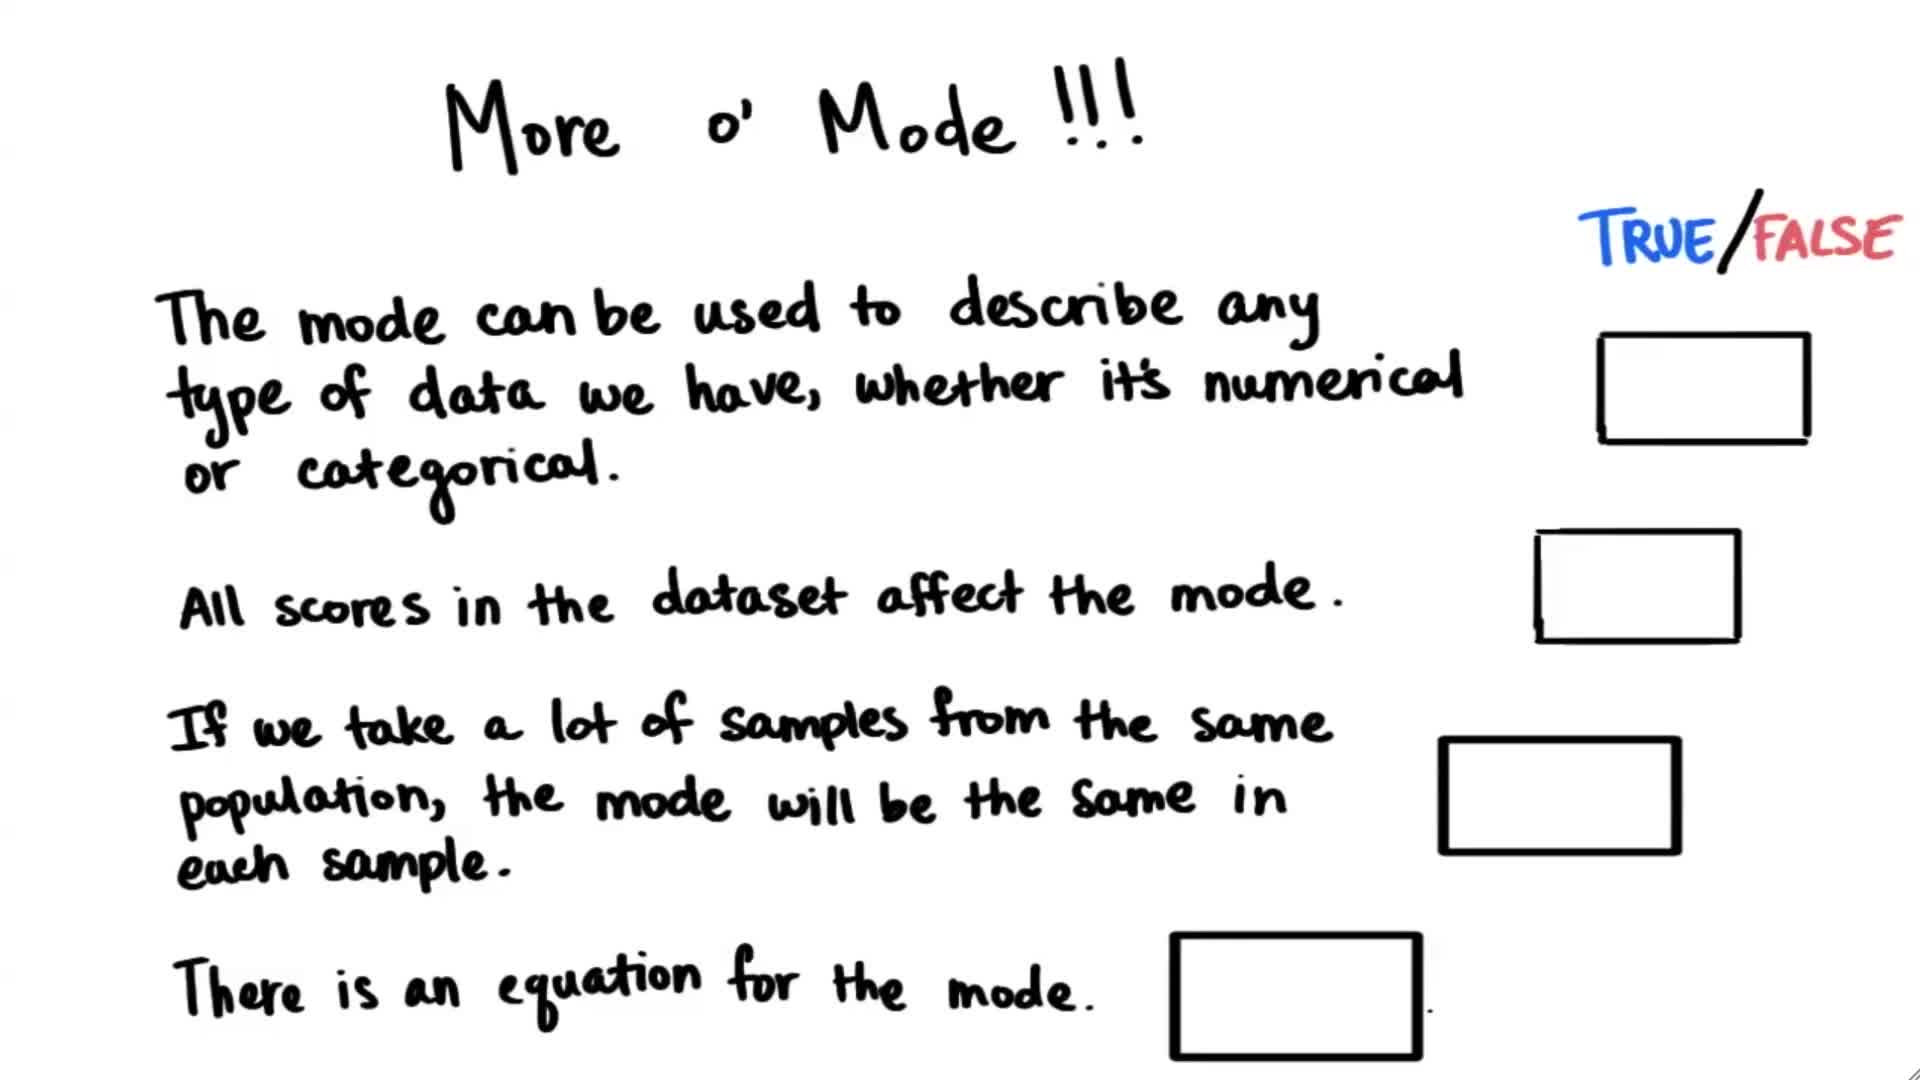 More o' Mode!!!
TRUE/FALSE
The mode can be used to describe any
type of data we have, whether it's numerical
or categorical.
All scores in the dataset affect the mode.
If we take a lot of samples from the same
population, the mode will be the same in
each sample.
There is an equation for the mode.